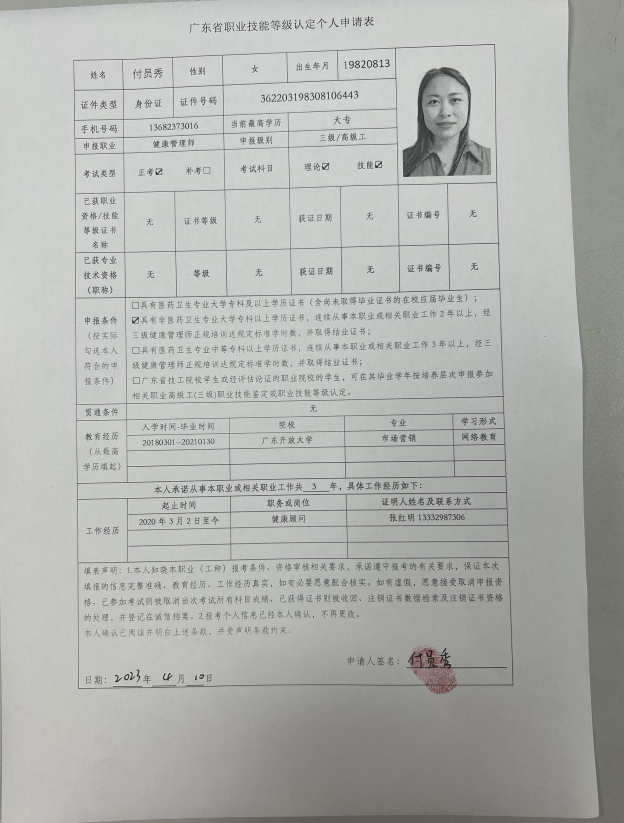 广东省职业技能等级认定个人申请表
姓名 付员秀 性别 女 出生年月 19820813
证件类型 身份证 证件号码 362203198308106443
手机号码 13682373016 当前最高学历 大专
申报职业 健康管理师 申报级别 三级/高级工
考试类型 正考☑ 补考☐ 考试科目 理论☑ 技能☑
已获职业资格/技能等级证书名称 无 证书等级 无 获证日期 无 证书编号 无
已获专业技术资格(职称) 无 等级 无 获证日期 无 证书编号 无
申报条件(按实际勾选本人符合的申报条件)
☐具有医药卫生专业大学专科及以上学历证书（含尚未取得毕业证书的在校应届毕业生）；
☑具有非医药卫生专业大学专科以上学历证书，连续从事本职业或相关职业工作2年以上，经
三级健康管理师正规培训达规定标准学时数，并取得结业证书；
☐具有医药卫生专业中等专科以上学历证书，连续从事本职业或相关职业工作3年以上，经三
级健康管理师正规培训达规定标准学时数，并取得结业证书；
☐广东省技工院校学生或经评估论证的职业院校的学生，可在其毕业学年按培养层次申报参加
相关职业高级工(三级)职业技能鉴定或职业技能等级认定。
贯通条件 无
教育经历(从最高学历填起)
入学时间-毕业时间 院校 专业 学习形式
20180301--20210130 广东开放大学 市场营销 网络教育
本人承诺从事本职业或相关职业工作共 3 年，具体工作经历如下：
工作经历
起止时间 职务或岗位 证明人姓名及联系方式
2020年3月2日至今 健康顾问 张红明 13332987306
填表声明：1.本人知晓本职业（工种）报考条件、资格审核相关要求，承诺遵守报考的有关要求，保证本次
填报的信息完整准确、教育经历、工作经历真实，如有必要愿意配合核实。如有虚假，愿意接受取消申报资
格、已参加考试则被取消当次考试所有科目成绩、已获得证书则被收回、注销证书数据检索及注销证书资格
的处理，并登记在诚信档案。2.报考个人信息已经本人确认，不再更改。
本人确认已阅读并明白上述条款，并受声明条款约束。
申请人签名： 付员秀
日期： 2023 年 4 月 10 日